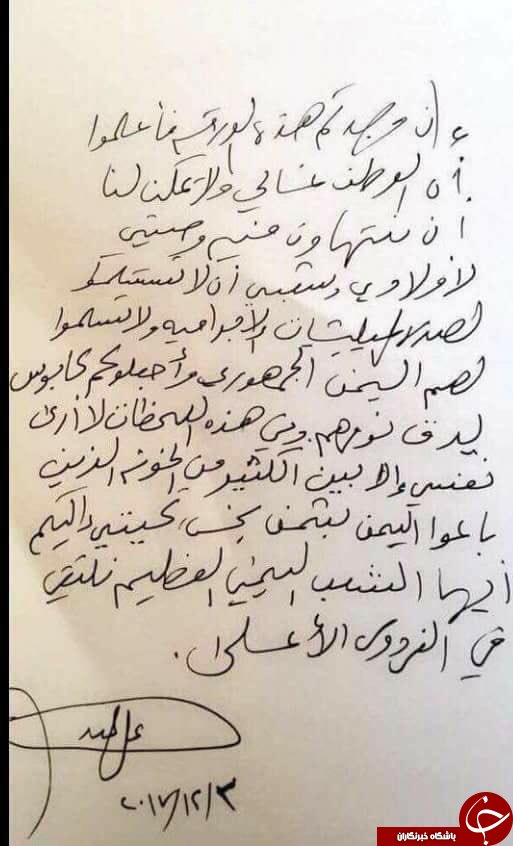 إن وجدتم هذه الورقة فأعلموا
أن الوطن غالي ولا يمكن لنا
أن نتهاون فيه وصيتي
لأولادي وشعبي أن لا تستسلموا
لهذه المليشيات الإجراميه ولا تسلموا
لهم اليمن الجمهوري وأجعلوكم كابوس
يدق نومهم وفي هذه اللحظات لا أرى
نفسي إلا بين الكثير من الخونه الذين
باعوا اليمن بثمن بخس تحيتي إليكم
أيها الشعب اليمني العظيم نلتقي
في الفردوس الأعلى.
٢٠١٧/١٢/٣
باشگاه خبرنگاران